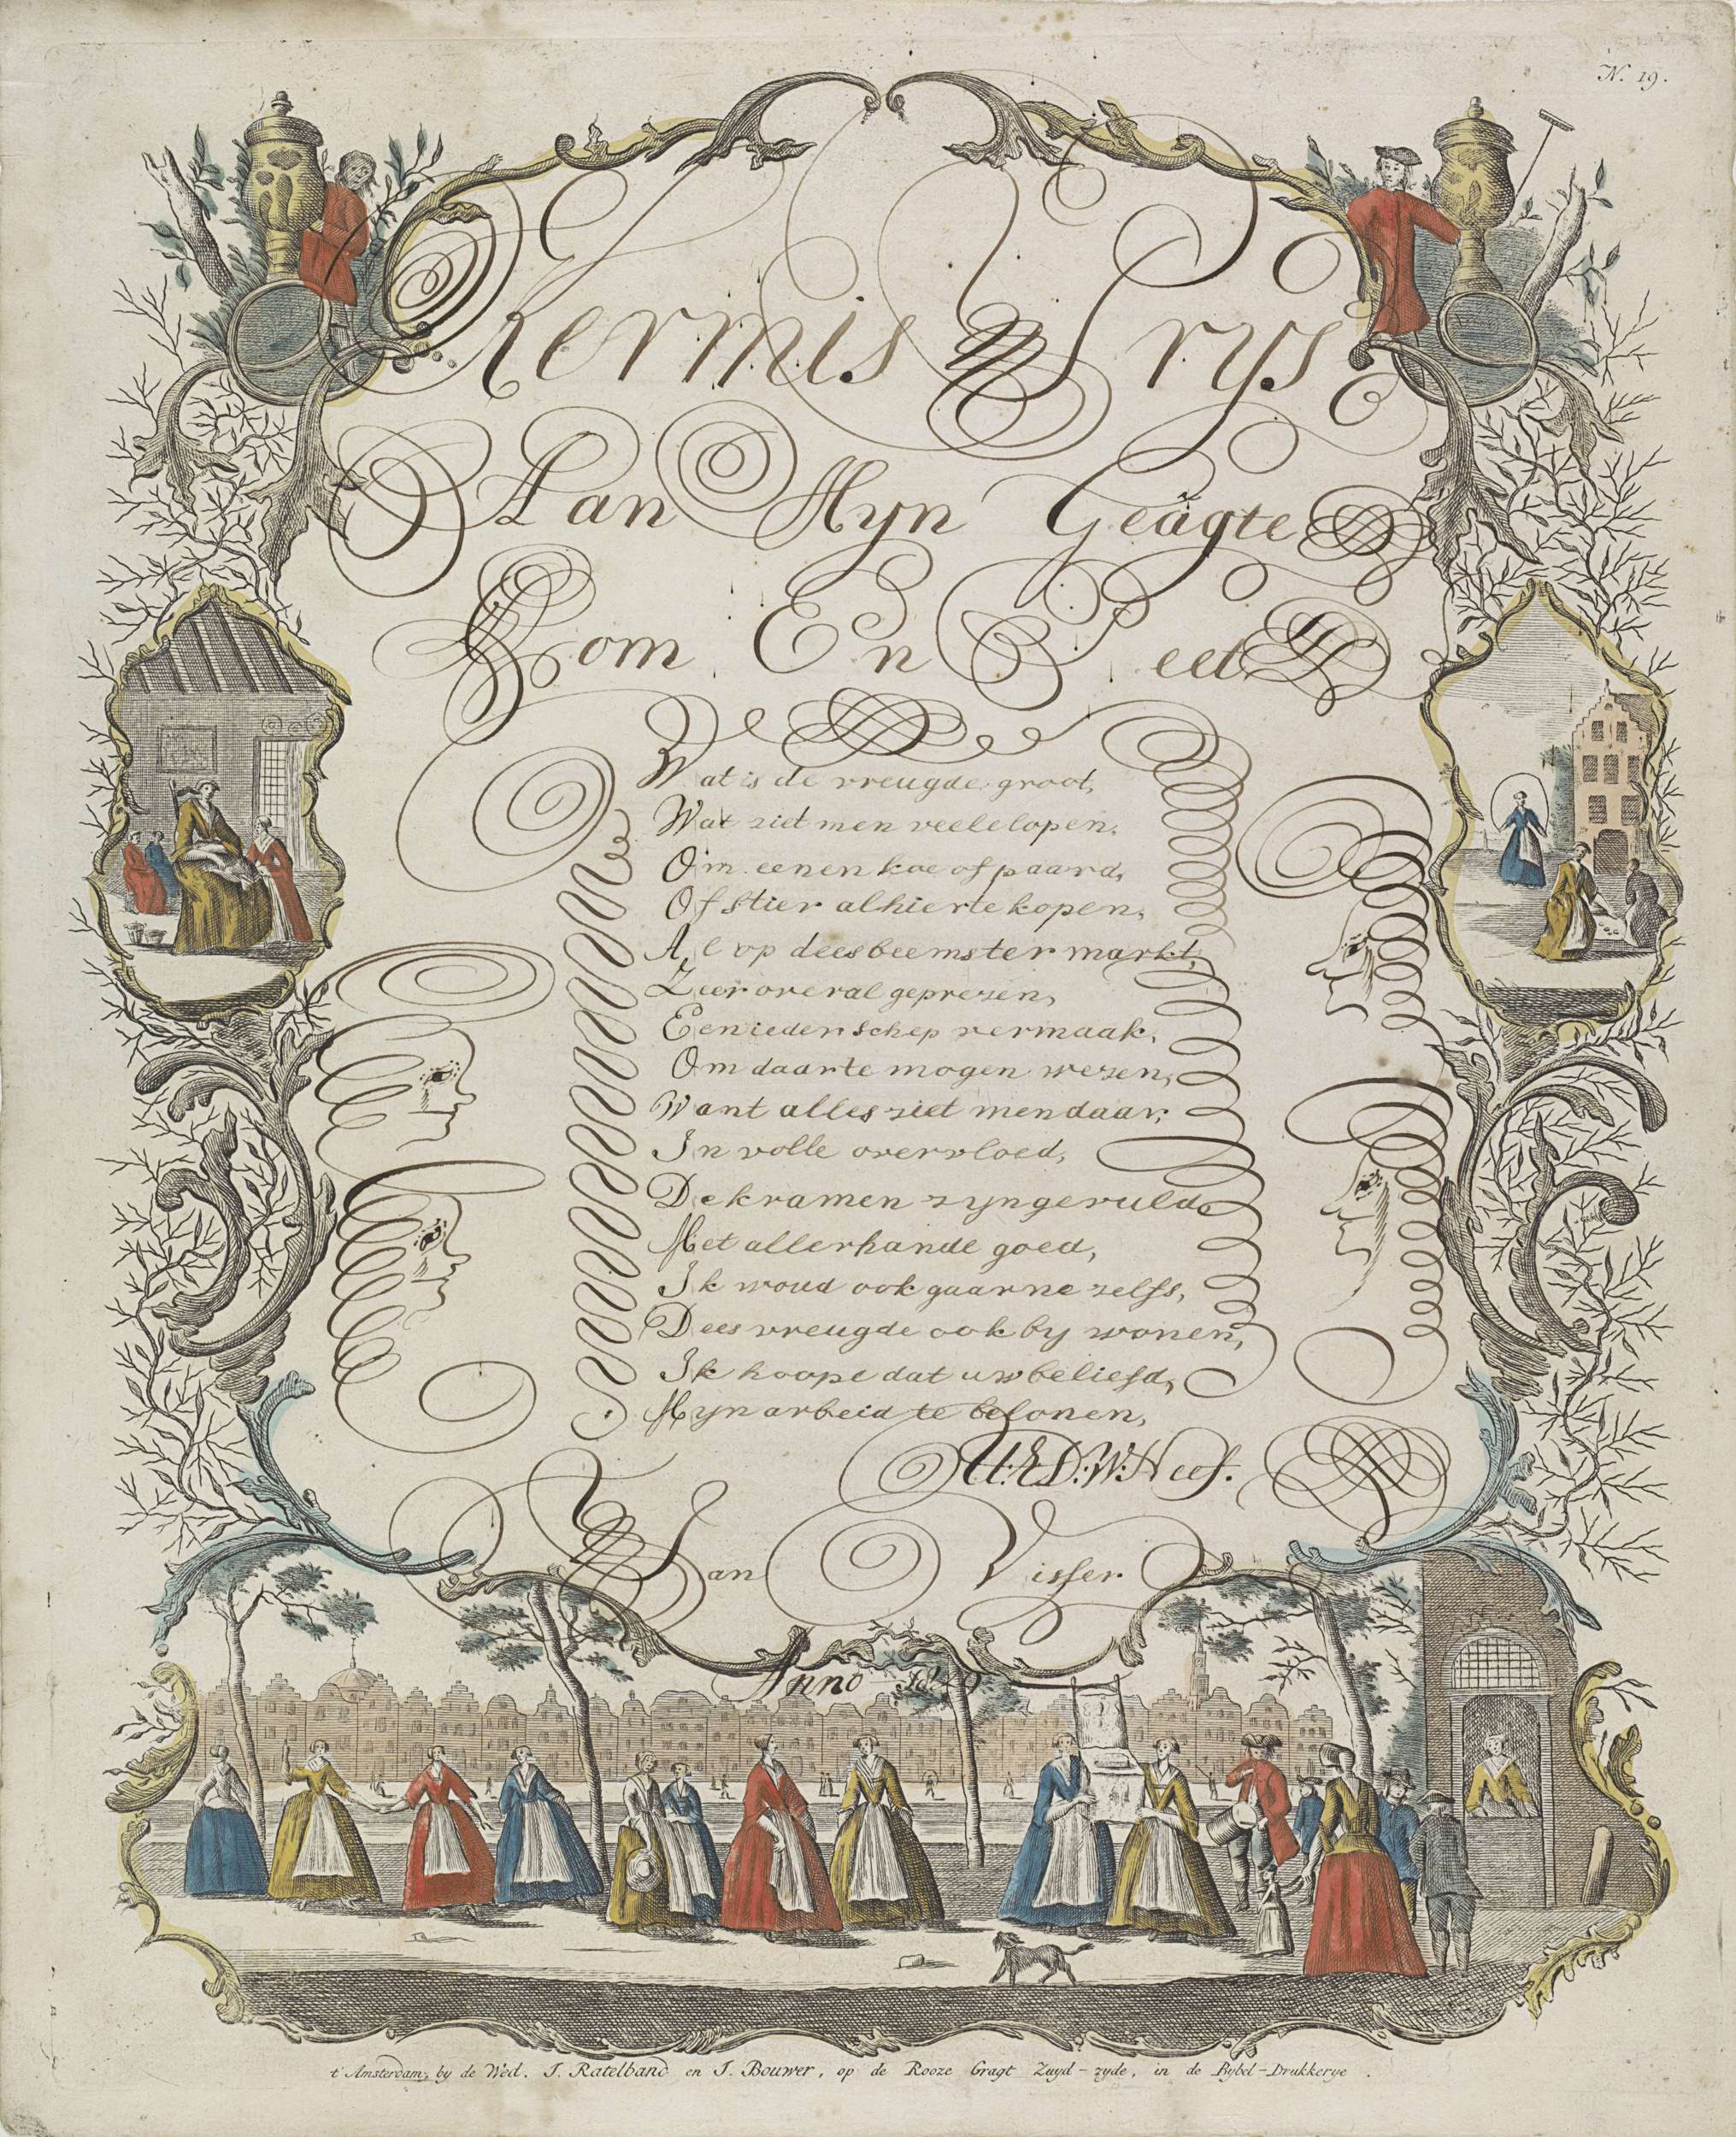 N. 19.
Kermis Prys
Aan Myn Geägte
Oom En Peet
Wat is de vreugde groot,
Wat ziet men veele lopen,
Om eenen koe of paard,
Of stier alhier te kopen,
Al op dees beemster markt,
Zeer overal geprezen,
Een ieder schep vermaak,
Om daar te mogen wezen,
Want alles ziet men daar,
In volle overvloed,
De kramen zyn gevuld,
Met allerhande goed,
Ik woud ook gaarne zelfs,
Dees vreugde ook by wonen,
Ik hoope dat uw beliefd,
Myn arbeid te belonen,
U:E:D:W: Neef.
Jan Visser
Anno
t'Amsterdam, by de Wed. J. Ratelband en J. Bouwer, op de Rooze Gragt Zuyd-zyde, in de Bybel-Drukkerye.